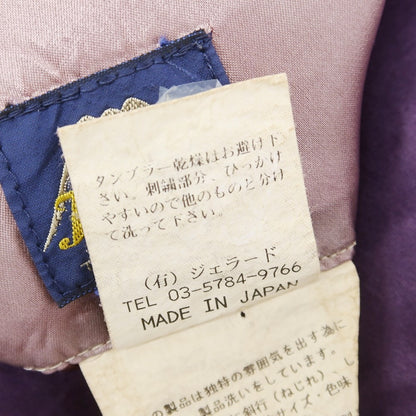 タンブラー乾燥はお避け下
さい。刺繍部分、ひっかけ
やすいので他のものと分け
て洗って下さい。
(有) ジェラード
TEL 03-5784-9766
MADE IN JAPAN
製品は独特の雰囲気を出す為に
製品洗いをしています。
斜行(ねじれ)
サイズ・色味